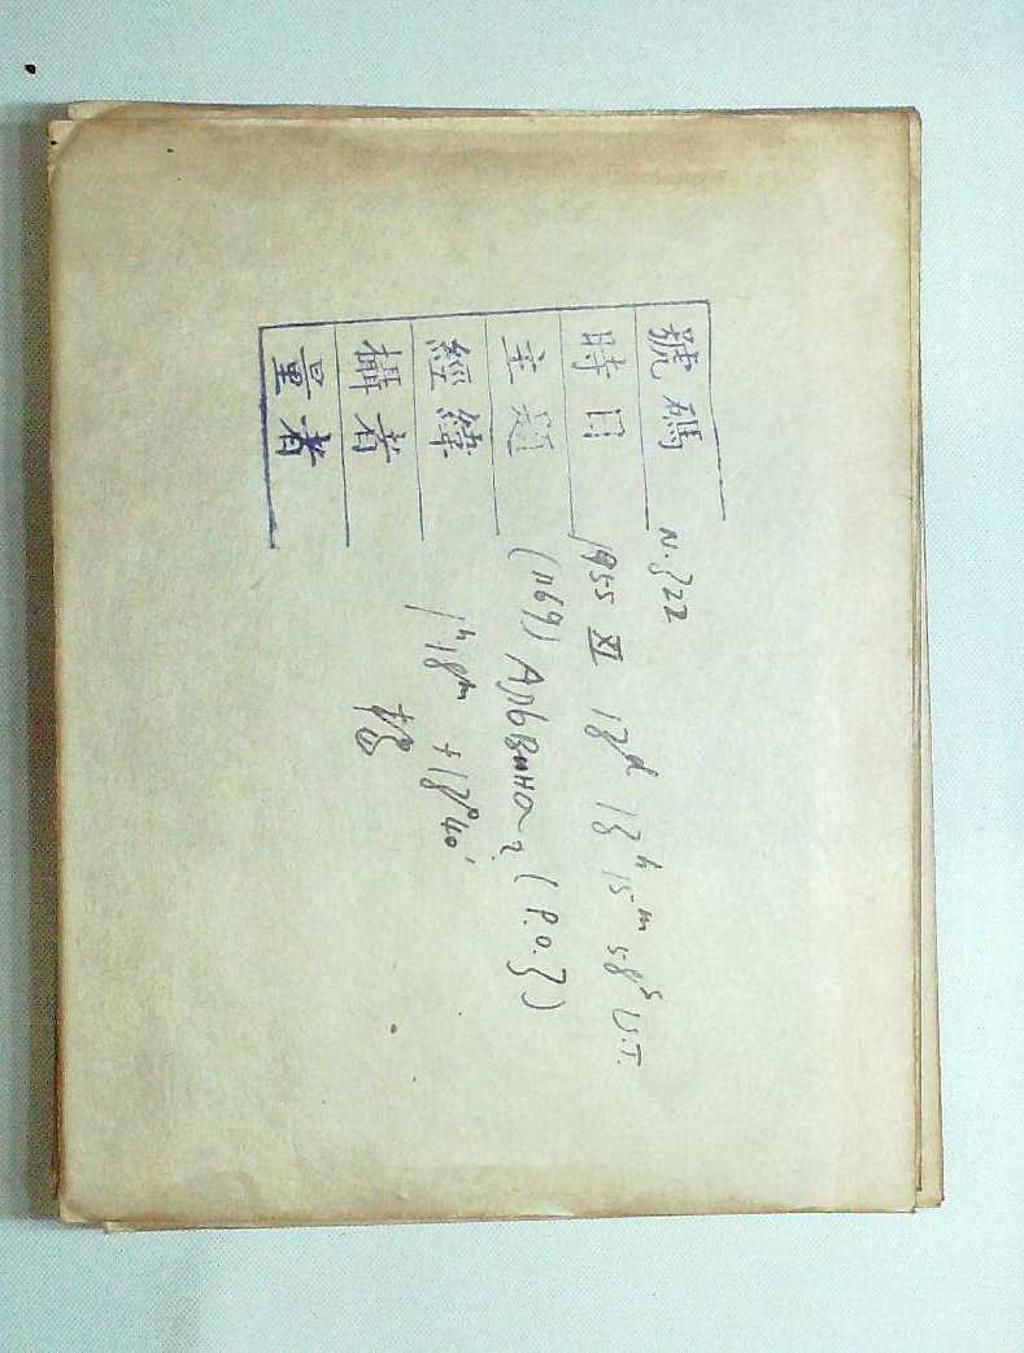 號碼 N.322
時日 1955 XI 13d 13h 15m 58s U.T.
主題 (1169) Альвина ? (P.O.3)
經緯 1h,8m +18°40'
攝者
量者